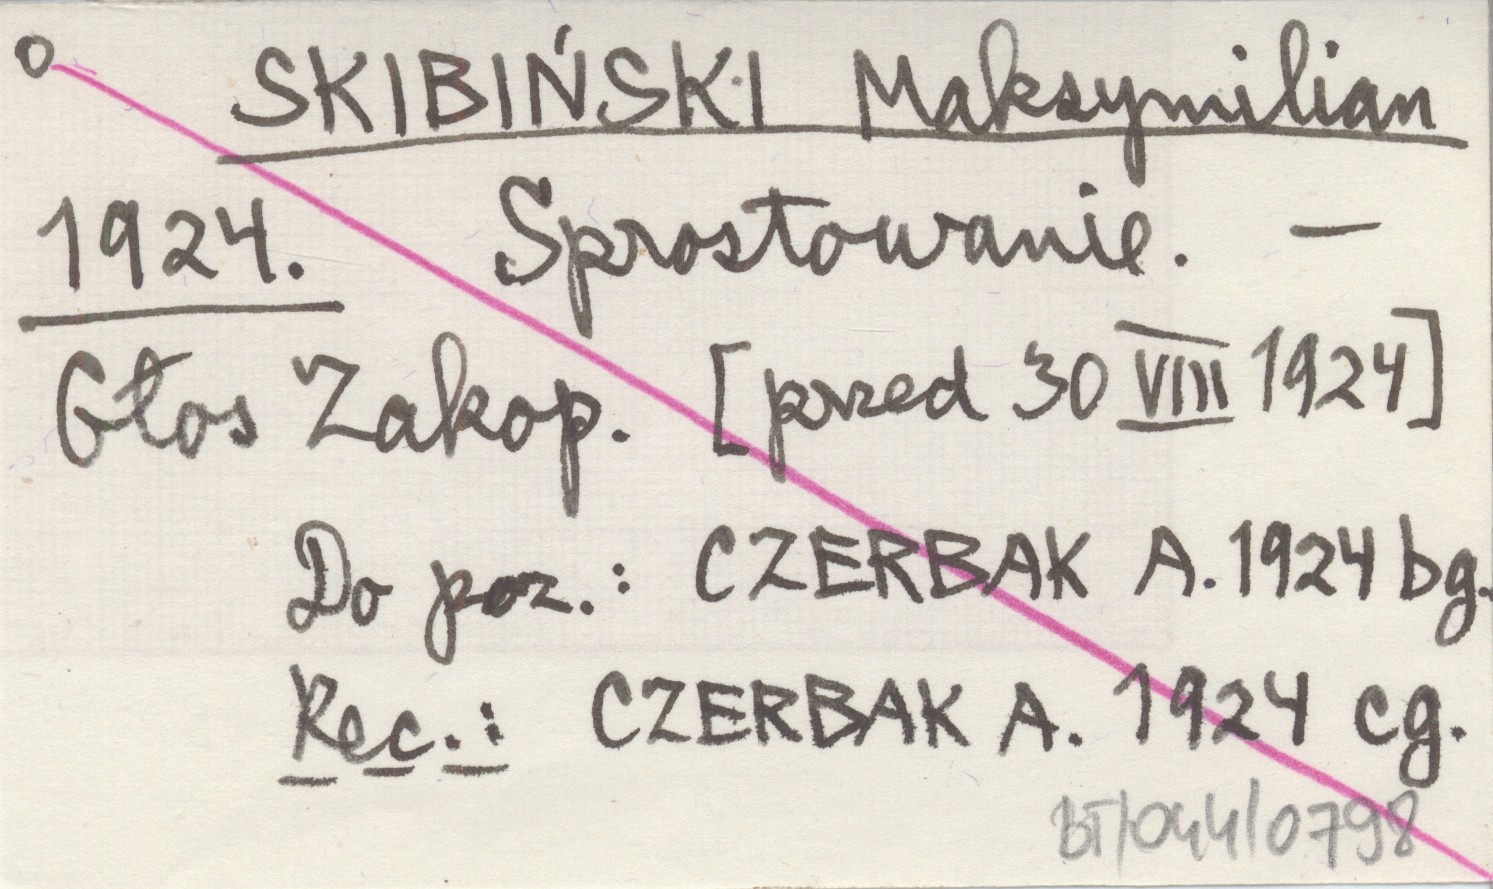 o SKIBIŃSKI Maksymilian
1924. Sprostowanie. —
Głos Zakop. [przed 30 VIII 1924]
Do poz.: CZERBAK A. 1924 bg.
Rec.: CZERBAK A. 1924 cg.
BT/044/0798